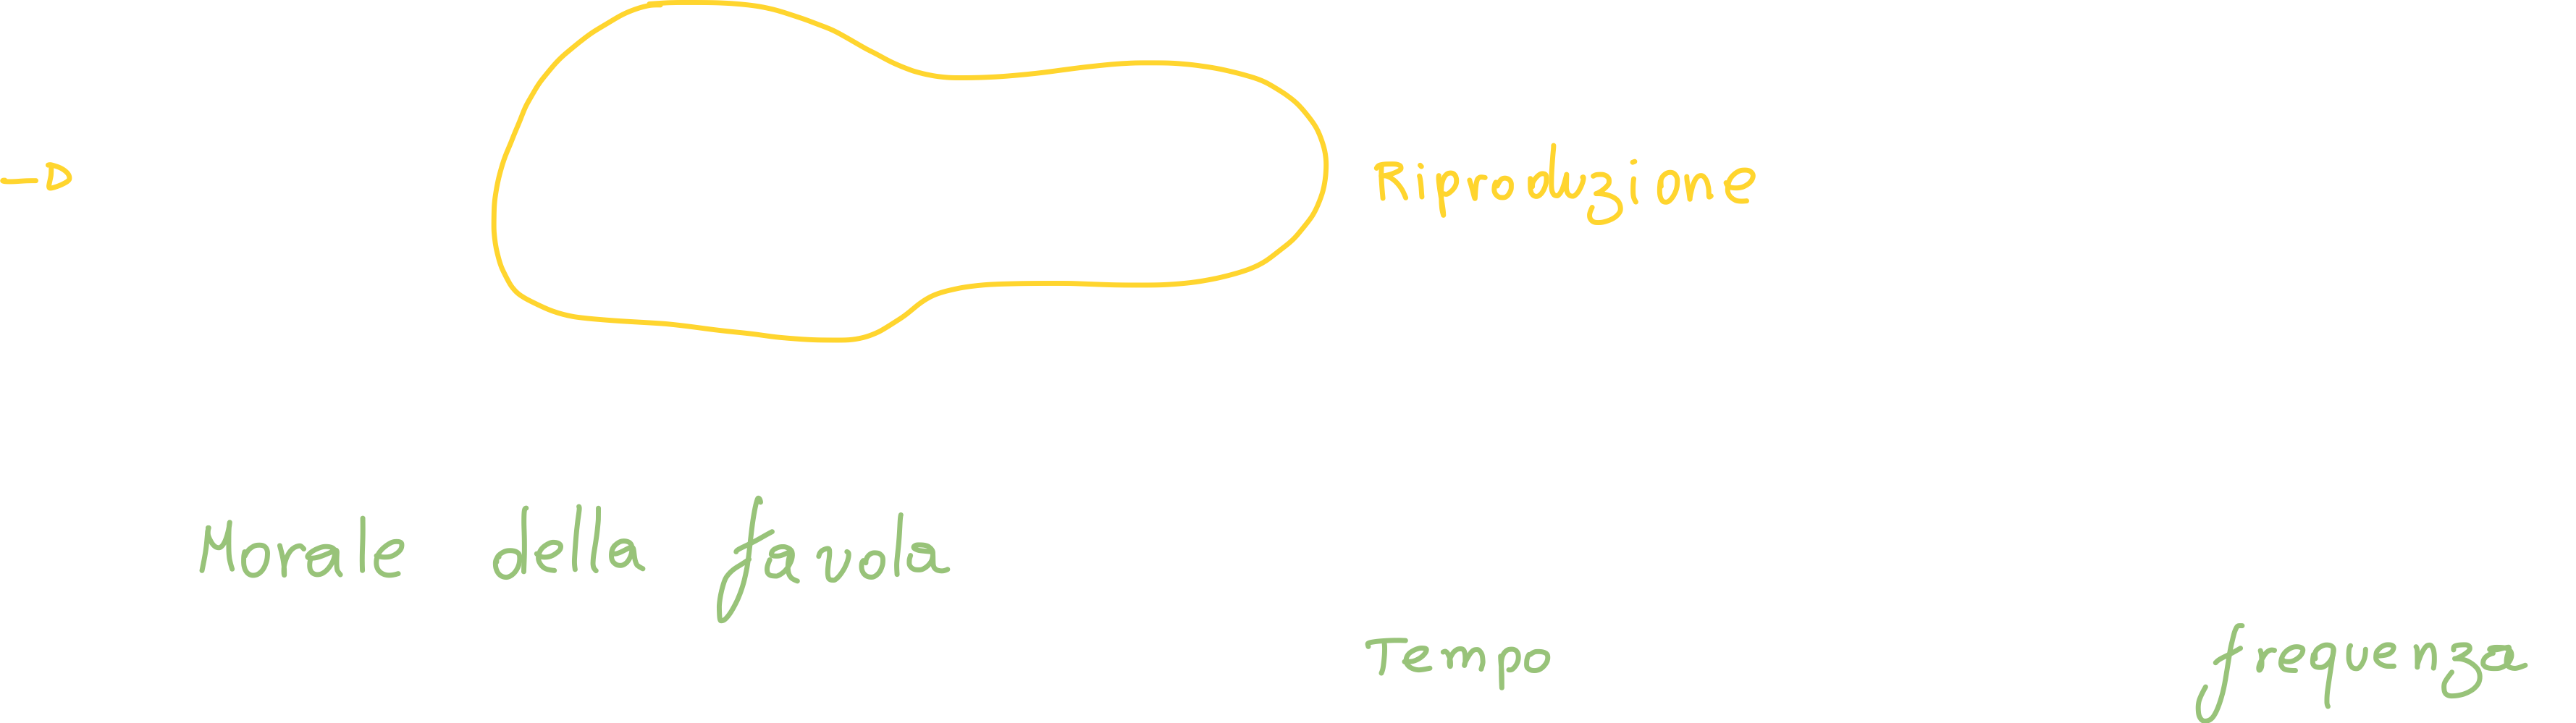 -D Riproduzione
Morale della favola
Tempo frequenza